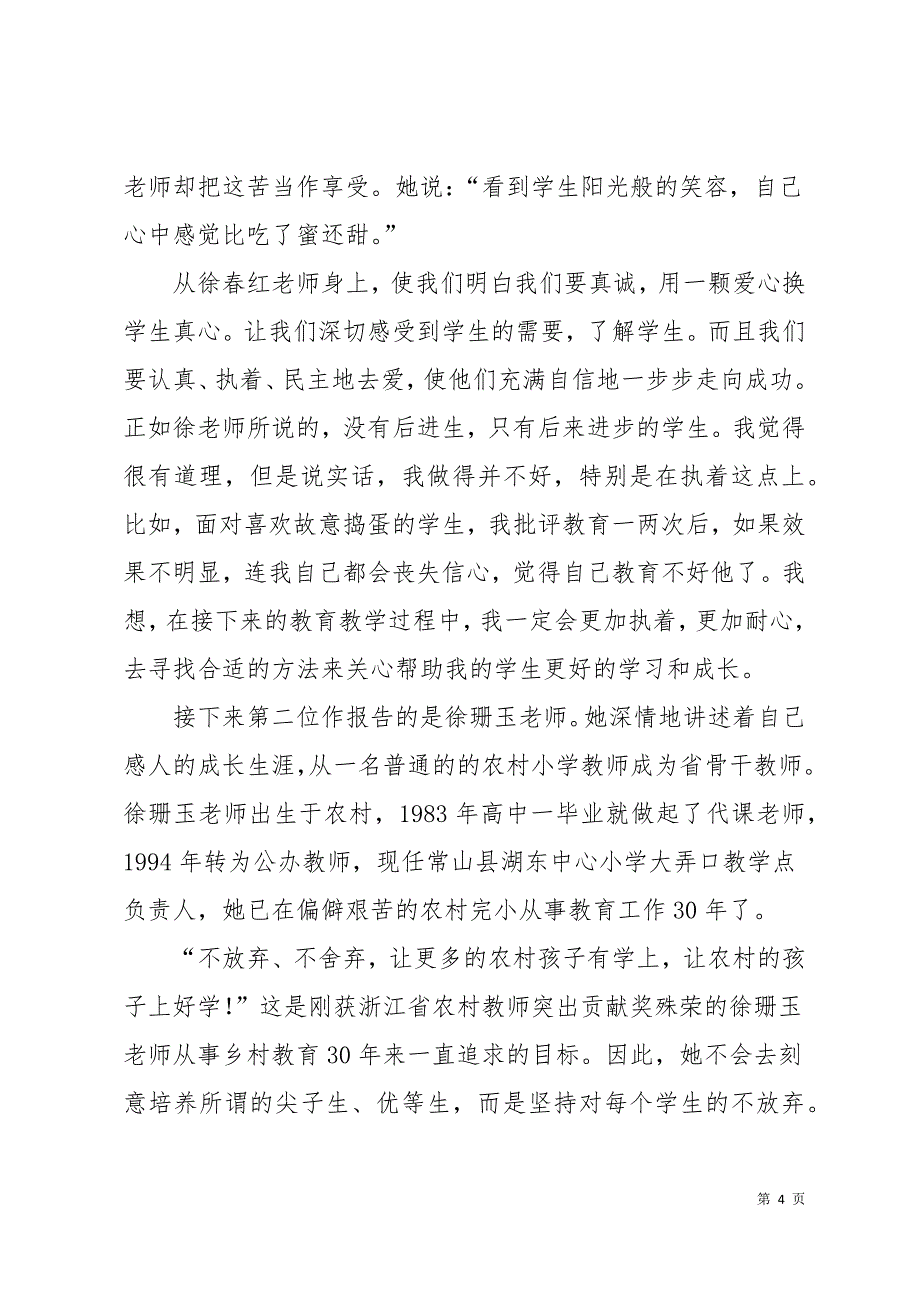 老师却把这苦当作享受。她说：“看到学生阳光般的笑容，自己
心中感觉比吃了蜜还甜。”
从徐春红老师身上，使我们明白我们要真诚，用一颗爱心换
学生真心。让我们深切感受到学生的需要，了解学生。而且我们
要认真、执着、民主地去爱，使他们充满自信地一步步走向成功。
正如徐老师所说的，没有后进生，只有后来进步的学生。我觉得
很有道理，但是说实话，我做得并不好，特别是在执着这点上。
比如，面对喜欢故意捣蛋的学生，我批评教育一两次后，如果效
果不明显，连我自己都会丧失信心，觉得自己教育不好他了。我
想，在接下来的教育教学过程中，我一定会更加执着，更加耐心，
去寻找合适的方法来关心帮助我的学生更好的学习和成长。
接下来第二位作报告的是徐珊玉老师。她深情地讲述着自己
感人的成长生涯，从一名普通的的农村小学教师成为省骨干教师。
徐珊玉老师出生于农村，1983 年高中一毕业就做起了代课老师，
1994 年转为公办教师，现任常山县湖东中心小学大弄口教学点
负责人，她已在偏僻艰苦的农村完小从事教育工作 30 年了。
“不放弃、不舍弃，让更多的农村孩子有学上，让农村的孩
子上好学！”这是刚获浙江省农村教师突出贡献奖殊荣的徐珊玉
老师从事乡村教育 30 年来一直追求的目标。因此，她不会去刻
意培养所谓的尖子生、优等生，而是坚持对每个学生的不放弃。
第 4 页